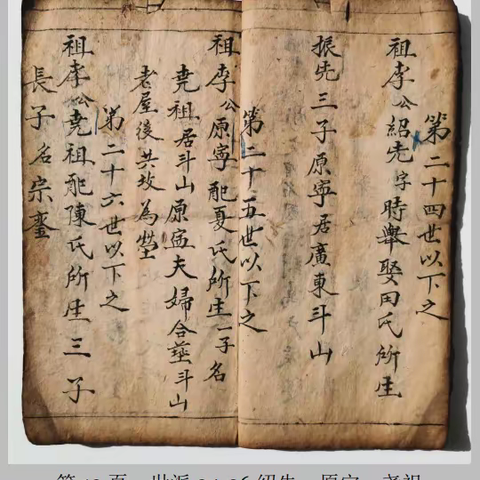 第二十四世以下之
祖李公紹先字時舉娶田氏所生
振先三子原寧居廣東斗山
第二十五世以下之
祖李公原寧配夏氏所生一子名
堯祖居斗山原寧夫婦合塋斗山
老屋後共坟為塋
第二十六世以下之
祖李公堯祖配陳氏所生三子
長子名宗鑾